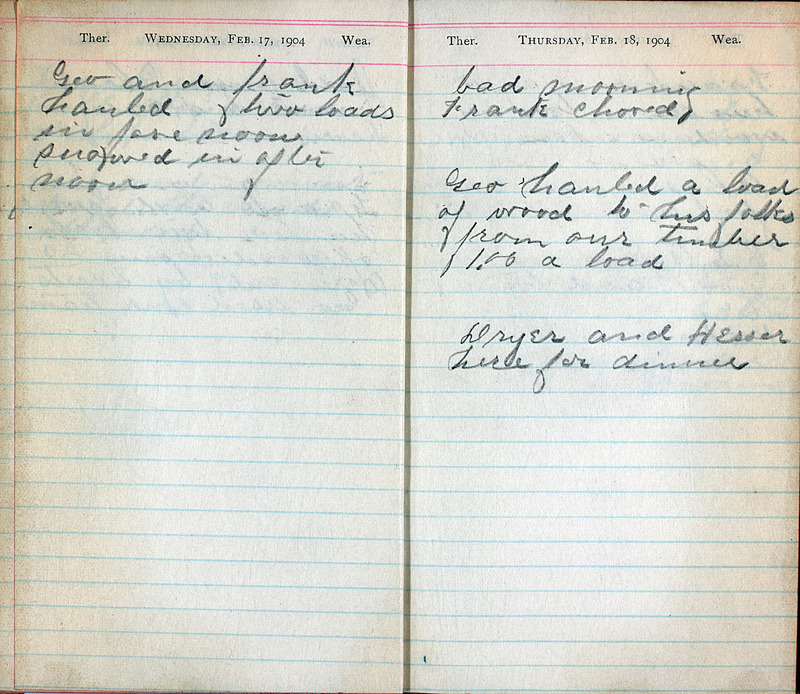 Ther. WEDNESDAY, FEB. 17, 1904 Wea.
Geo and frank
hauled two loads
in fore noon
snowed in after
noon
Ther. THURSDAY, FEB. 18, 1904 Wea.
bad morning
Frank chored
Geo hauled a load
of wood to his folks
from our timber
1.00 a load
Dryer and Hesser
here for dinner